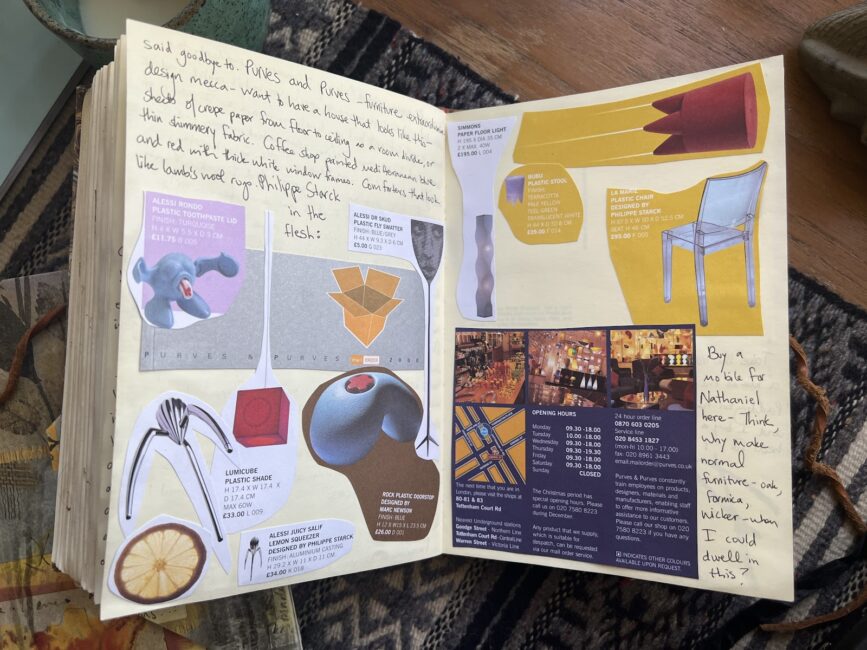 said goodbye to. Purves and Purves - furniture extraordinaire
design mecca - want to have a house that looks like this -
sheets of crepe paper from floor to ceiling as a room divider, or
thin shimmery fabric. Coffee shop painted mediterranean blue
and red with thick white window frames. Comforters that look
like lamb's wool rugs. Philippe Starck
in the
flesh:
ALESSI RONDO
PLASTIC TOOTHPASTE LID
FINISH: TURQUOISE
£11.75
ALESSI DR SKUD
PLASTIC FLY SWATTER
FINISH: BLUE/GREY
H 44 X W 9.5 X D 6 CM
£5.00 G 023
PURVES & PURVES 2000
LUMICUBE
PLASTIC SHADE
H 17.4 X W 17.4 X
D 17.4 CM
MAX 60W
£33.00 L 009
ROCK PLASTIC DOORSTOP
DESIGNED BY
MARC NEWSON
FINISH: BLUE
£26.00 D 001
ALESSI JUICY SALIF
LEMON SQUEEZER
DESIGNED BY PHILIPPE STARCK
FINISH: ALUMINIUM CASTING
H 29.2 X W 11 X D 11 CM
£34.00 K 018
SIMMONS
PAPER FLOOR LIGHT
H 195 X DIA 35 CM
2 X MAX. 40W
£195.00 L 004
BUBU
PLASTIC STOOL
FINISH:
TERRACOTTA
PALE YELLOW
TEEL GREEN
TRANSLUCENT WHITE
£39.00 F 014
LA MARIE
PLASTIC CHAIR
DESIGNED BY
PHILIPPE STARCK
H 87.5 X W 50 X D 52.5 CM
SEAT H 46 CM
£95.00 F 005
The next time that you are in
London, please visit the shops at
80-81 & 83
Tottenham Court Rd
Nearest Underground stations
Goodge Street - Northern Line
Tottenham Court Rd - Central Line
Warren Street - Victoria Line
OPENING HOURS
Monday 09.30 -18.00
Tuesday 10.00 -18.00
Wednesday 09.30 -18.00
Thursday 09.30 -19.30
Friday 09.30 -18.00
Saturday 09.30 -18.00
Sunday CLOSED
The Christmas period has
special opening hours. Please
call us on 020 7580 8223
during December.
Any product that we supply,
which is suitable for
despatch, can be requested
via our mail order service.
24 hour order line
0870 603 0205
Service line
020 8453 1827
(mon-fri 10.00 - 17.00)
fax: 020 8961 3443
email:mailorder@purves.co.uk
Purves & Purves constantly
train employees on products,
designers, materials and
manufacturers, enabling staff
to offer more informative
assistance to our customers.
Please call our shop on 020
7580 8223 if you have any
questions.
INDICATES OTHER COLOURS
AVAILABLE UPON REQUEST.
Buy a
mobile for
Nathaniel
here - Think,
Why make
normal
furniture - oak,
formica,
wicker - when
I could
dwell in
this?